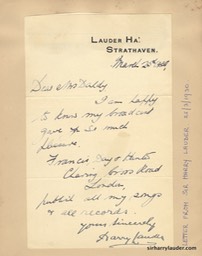 LAUDER HA'
STRATHAVEN.
March
Dear Mrs
I am happy
to know my broadcast
gave so much
pleasure.
Francis Day & Hunter
Charing Cross Road
London,
publish all my songs
& all records.
yours Sincerely
Harry Lauder
LETTER FROM SIR HARRY LAUDER
sirharrylauder.com